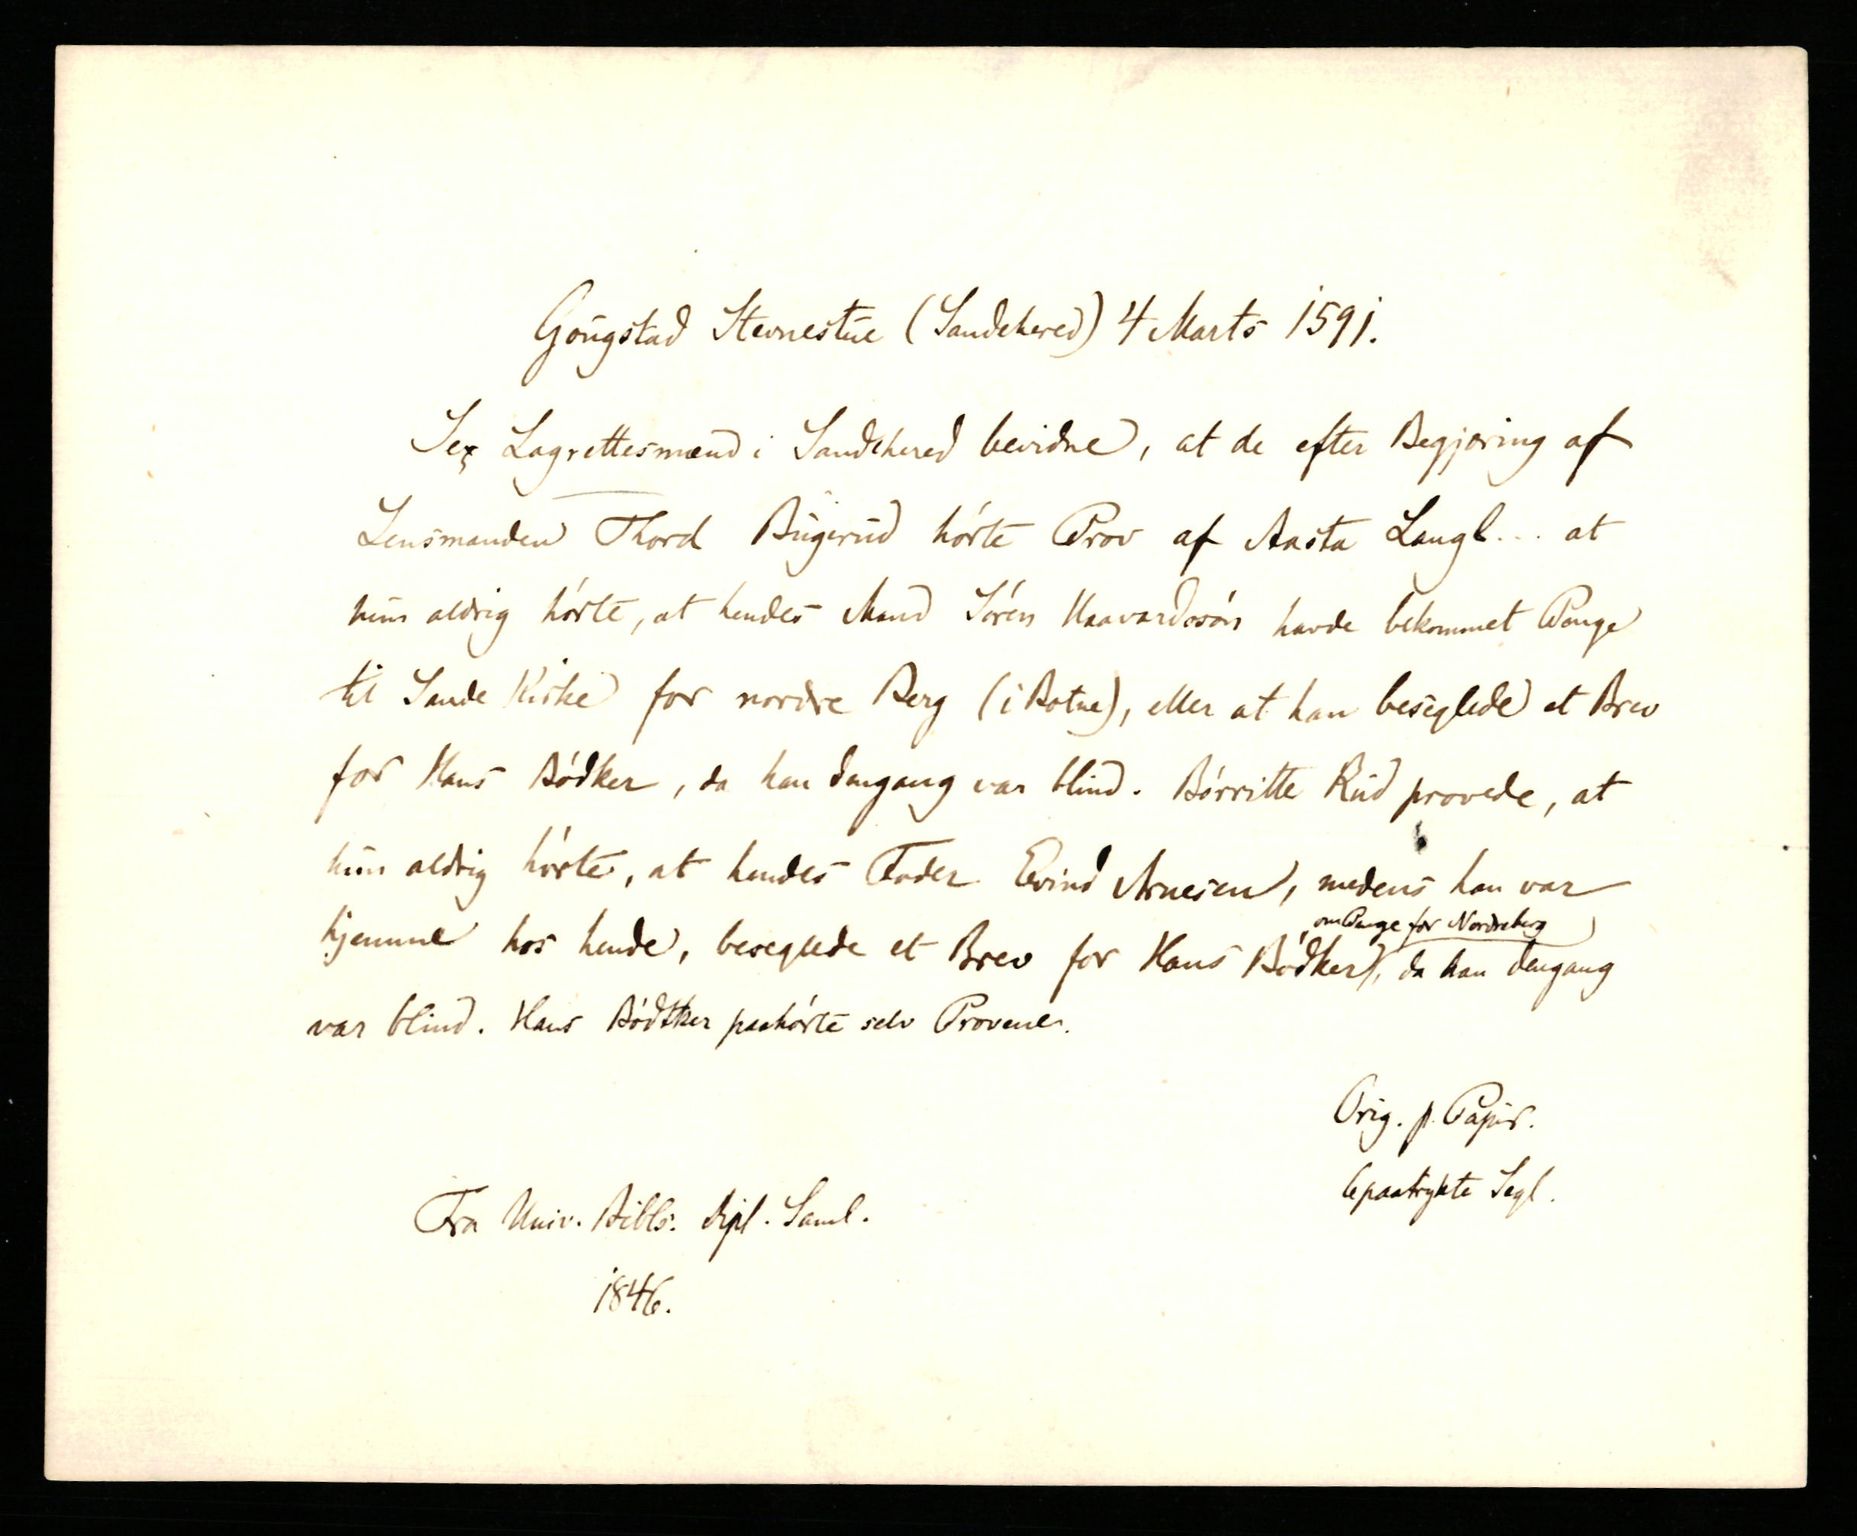 Gougstad Stevnestue (Sandehered) 4 Marts 1591.
Sex Lagrettesmænd i Sandehered bevidne, at de efter Begjæring af
Lensmanden Thord Bugerud hörte Prov af Aasta Laugl... at
hun aldrig hörte, at hendes Mand Sören Haavardssön havde bekommet Penge
til Sande Kirke for nordre Berg (i Botne), eller at han beseglede et Brev
for Hans Bödker, da han dengang var blind. Börritte Rud provede, at
hun aldrig hörte, at hendes Fader Evind Arnesen, medens han var
hjemme hos hende, beseglede et Brev for Hans Bödker om Penge for Nordreberg, da han dengang
var blind. Hans Bödtker paahörte selv Provene.
Orig. p. Papir.
6 paatrykte Segl.
Fra Univ. Bibls. dipl. Saml.
1846.